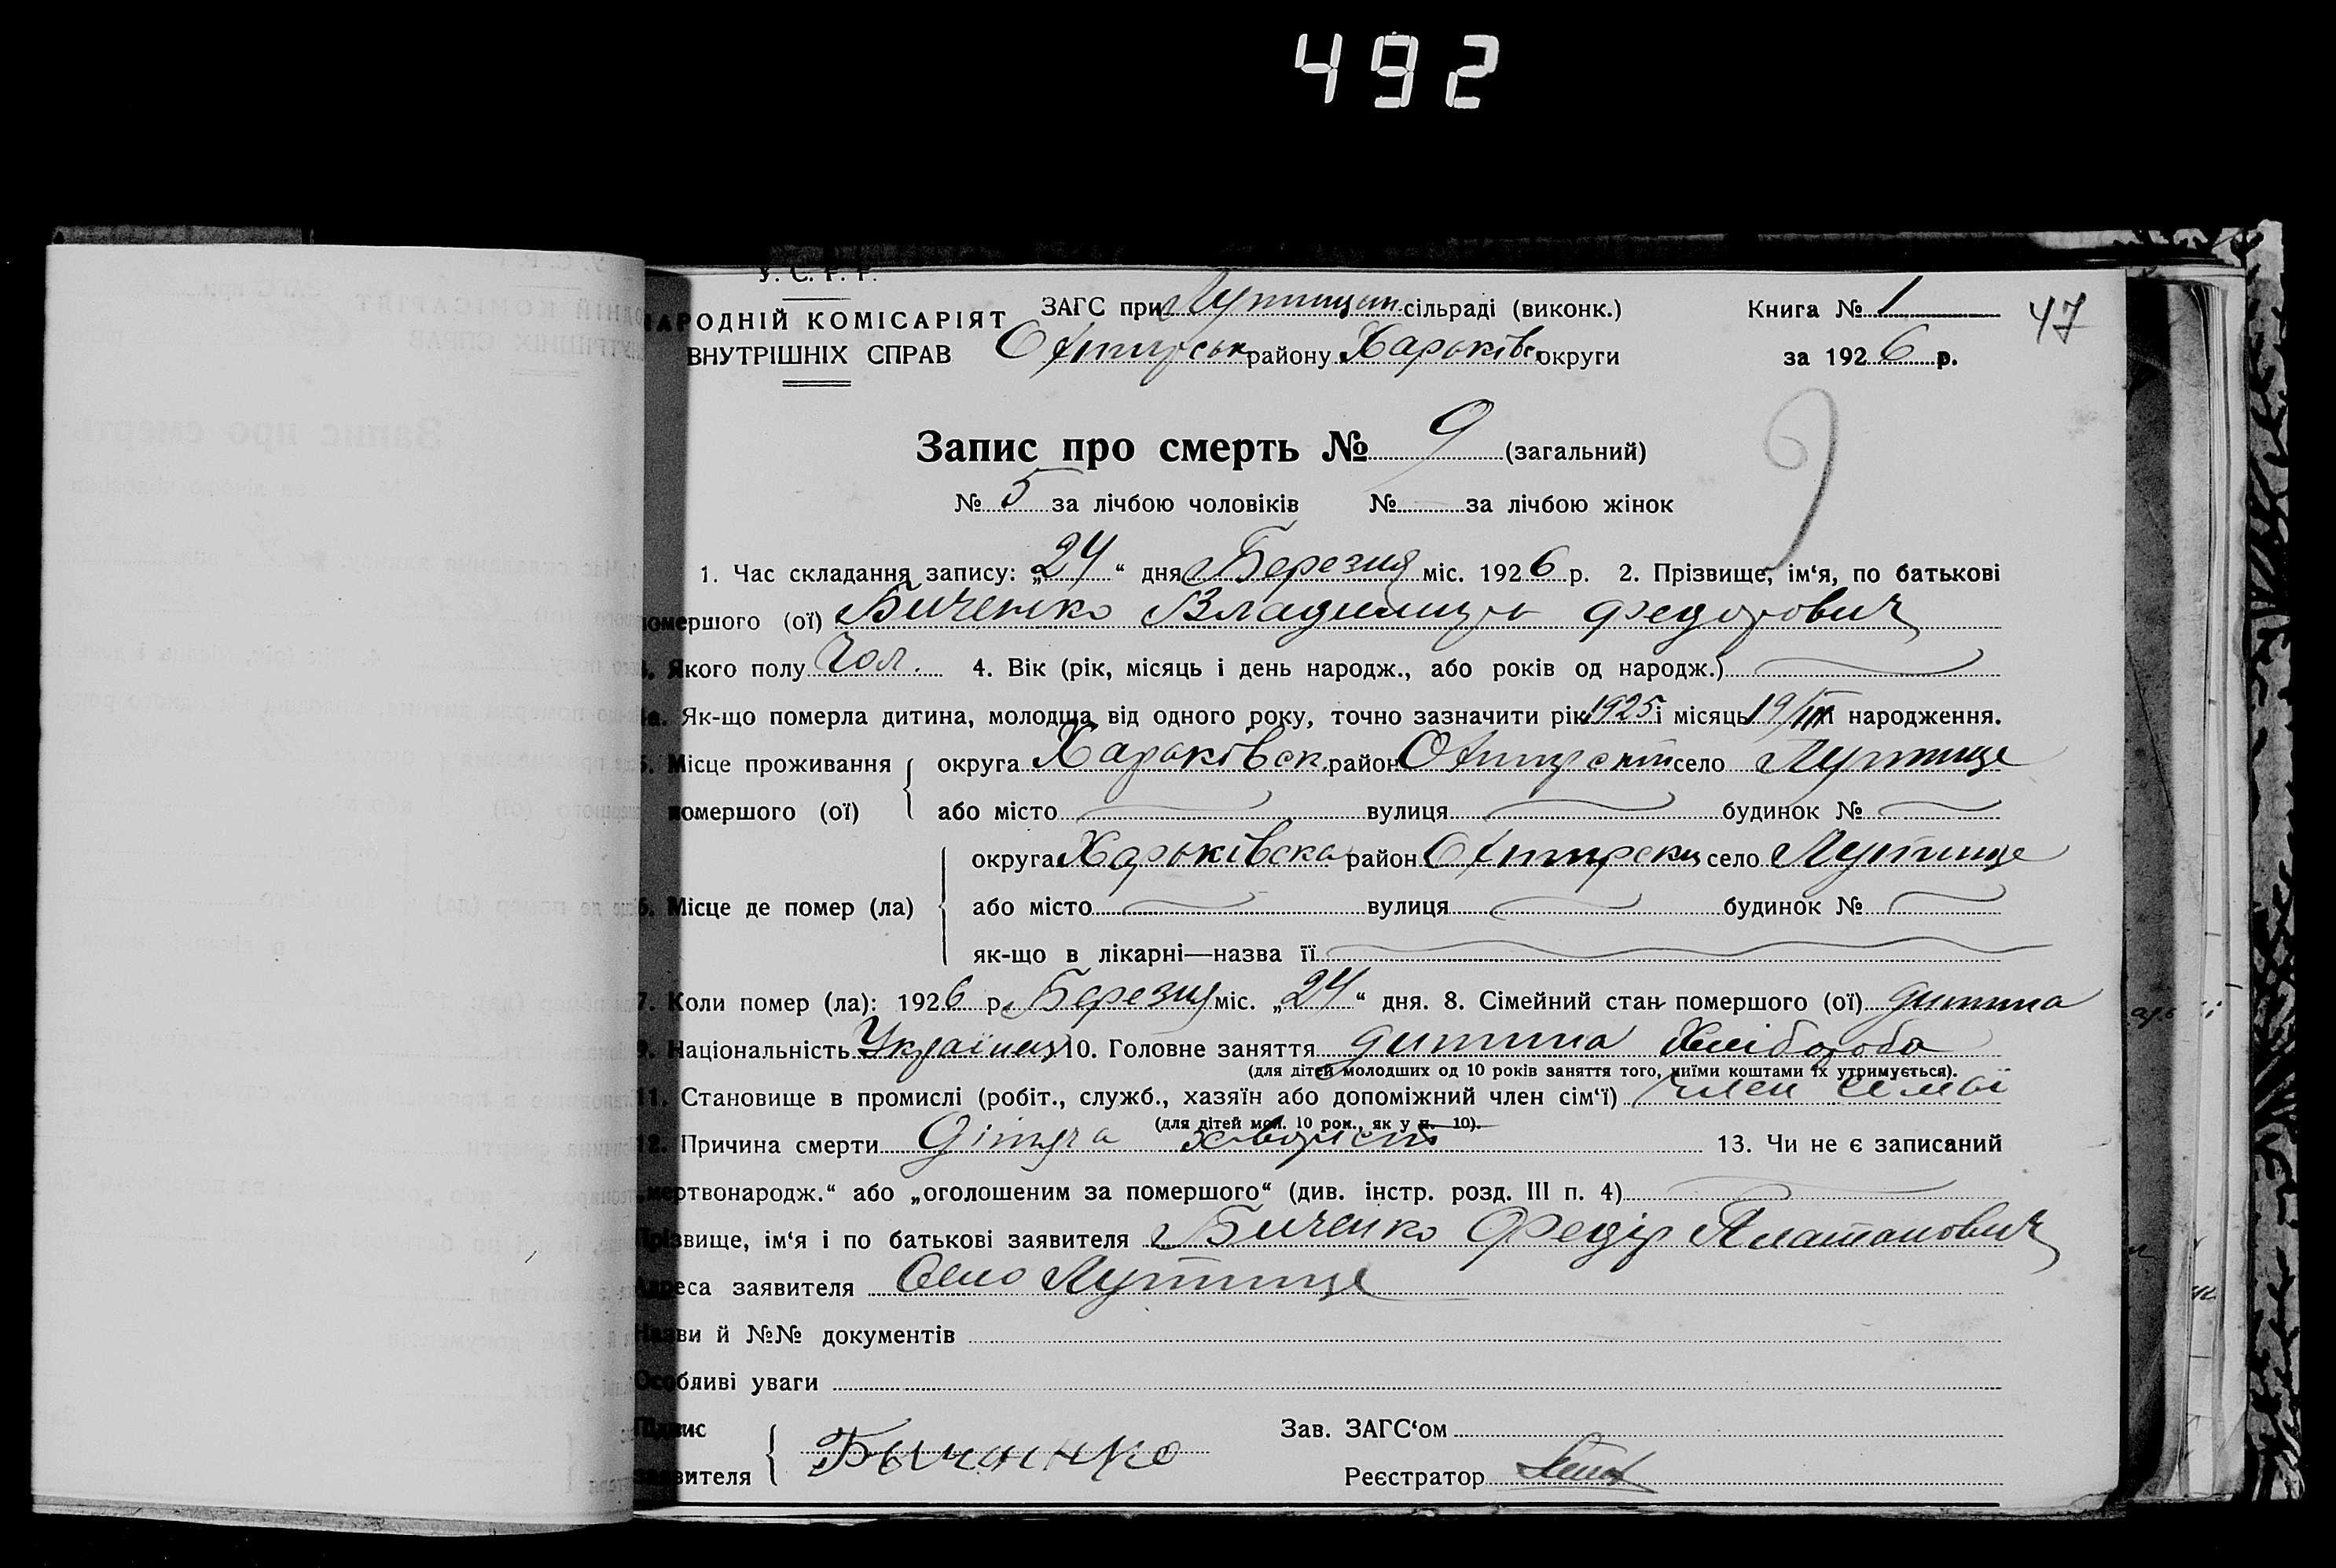 492
У. С. Р. Р.
НАРОДНІЙ КОМІСАРІЯТ
ВНУТРІШНІХ СПРАВ
ЗАГС при Лутищан. сільраді (виконк.)
Охтирськ району Харьківс. округи
Книга № 1
за 1926 р.
47
Запис про смерть № 9 (загальний)
9
№ 5 за лічбою чоловіків № за лічбою жінок
1. Час складання запису: „24“ дня Березня міс. 1926 р. 2. Прізвище, ім‘я, по батькові
помершого (ої) Биченко Владимир Федорович
3. Якого полу Чол. 4. Вік (рік, місяць і день народж., або років од народж.)
4а. Як-що померла дитина, молодща від одного року, точно зазначити рік 1925 і місяць 19/III народження.
5. Місце проживання помершого (ої) округа Харьківськ. район Охтирский село Лутище
або місто вулиця будинок №
6. Місце де помер (ла) округа Харьківска район Охтирски село Лутище
або місто вулиця будинок №
як-що в лікарні—назва її
7. Коли помер (ла): 1926 р. Березня міс. „24“ дня. 8. Сімейний стан помершого (ої) дитина
9. Національність Українец 10. Головне заняття дитина Хлібороба
(для дітей молодших од 10 років заняття того, чиїми коштами їх утримується).
11. Становище в промислі (робіт., служб., хазяїн або допоміжний член сім‘ї) член семьї
(для дітей мол. 10 рок., як у п. 10).
12. Причина смерти Дітяча 13. Чи не є записаний
„мертвонародж.“ або „оголошеним за помершого“ (див. інстр. розд. III п. 4)
Прізвище, ім‘я і по батькові заявителя Биченко Федір Платонович
Адреса заявителя Село Лутище
Назви й №№ документів
Особливі уваги
Підпис заявителя Быченко
Зав. ЗАГС‘ом
Реєстратор